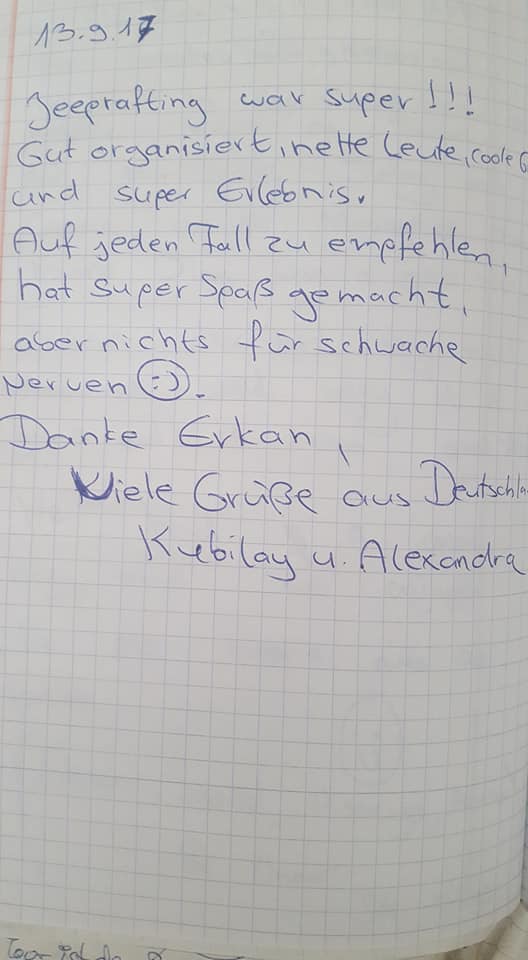 13.9.17
Jeeprafting war super!!!
Gut organisiert, nette Leute, coole
und super Erlebnis.
Auf jeden Fall zu empfehlen,
hat super Spaß gemacht,
aber nichts für schwache
Nerven :).
Danke Erkan,
Viele Grüße aus Deutschla
Kubilay u. Alexandra